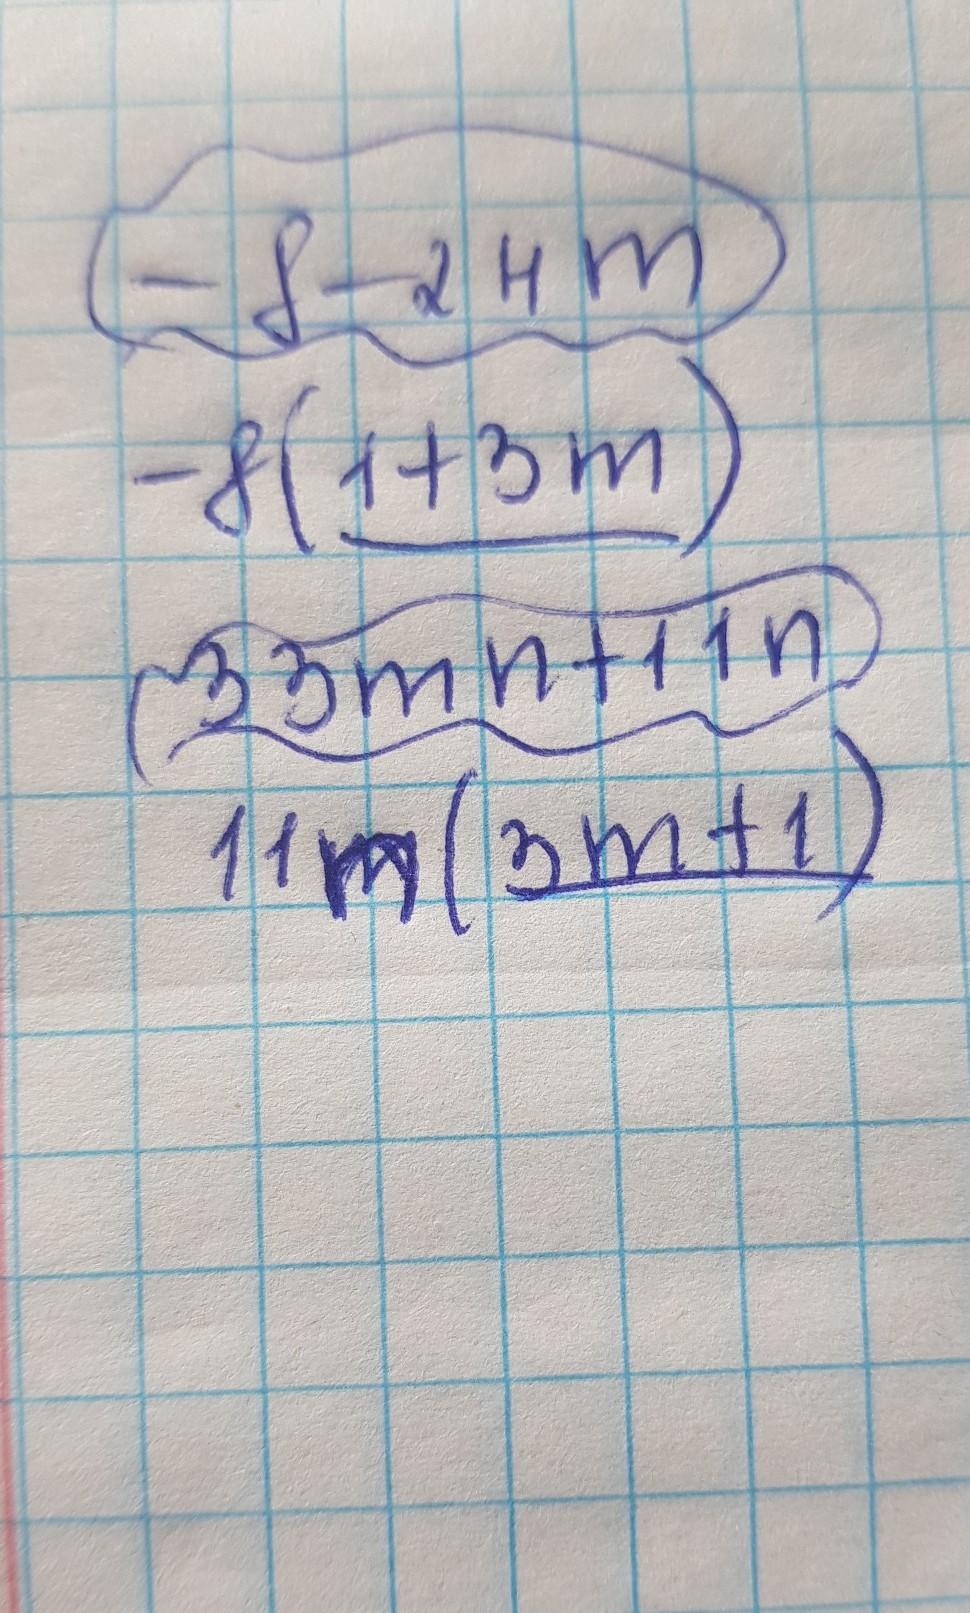 -8-24m
-8(1+3m)
33mn+11n
11m(3m+1)